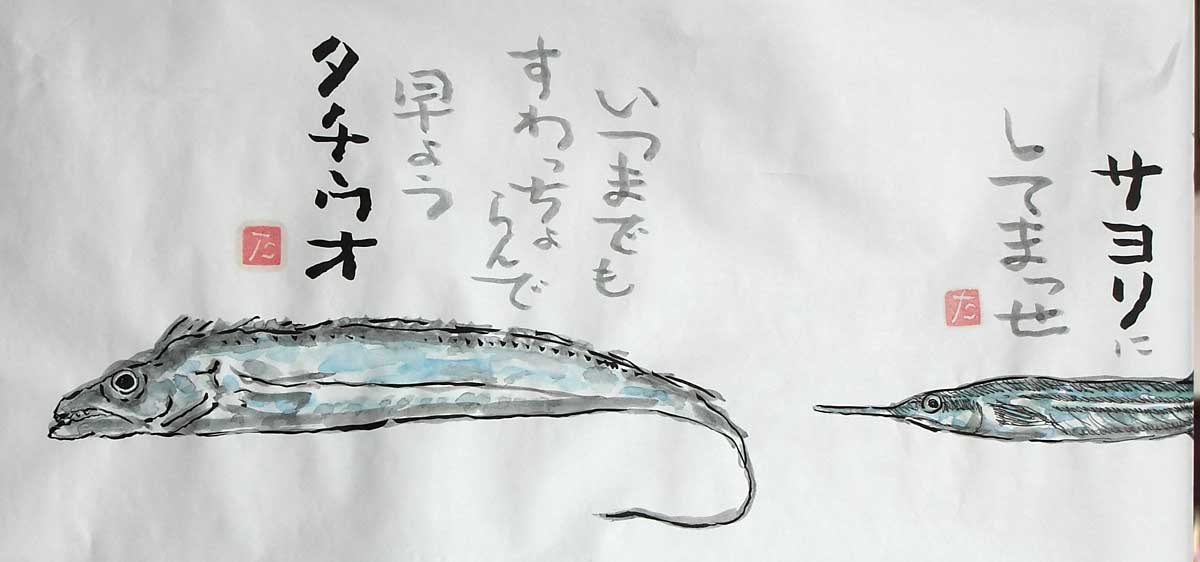 サヨリに
してまっせ
た
いつまでも
すわっちょ
らんで
早よう
タチウオ
た